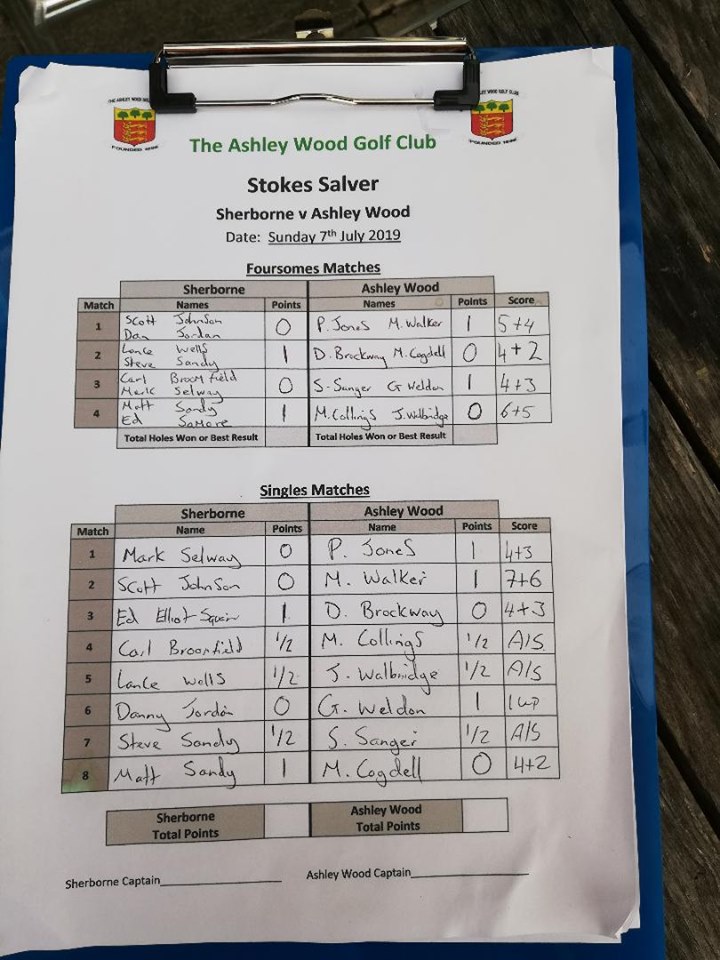 THE ASHLEY WOOD GOLF CLUB
The Ashley Wood Golf Club
Stokes Salver
Sherborne v Ashley Wood
Date: Sunday 7th July 2019
Foursomes Matches
Sherborne Ashley Wood
Match Names Points Names Points Score
1 Scott Johnson 0 P. Jones M. Walker 1 5+4
Dan Jordan
2 Lance Wells 1 D. Brockway M. Cogdell 0 4+2
Steve Sandy
3 Carl Broomfield 0 S. Sanger G Weldon 1 4+3
Mark Selway
4 Matt Sandy 1 M. Collings J. Walbridge 0 6+5
Ed
Total Holes Won or Best Result Total Holes Won or Best Result
Singles Matches
Sherborne Ashley Wood
Match Name Points Name Points Score
1 Mark Selway 0 P. Jones 1 4+3
2 Scott Johnson 0 M. Walker 1 7+6
3 Ed Elliot 1 D. Brockway 0 4+3
4 Carl Broomfield 1/2 M. Collings 1/2 A/S
5 Lance Wells 1/2 J. Walbridge 1/2 A/S
6 Danny Jordan 0 G. Weldon 1 1up
7 Steve Sandy 1/2 S. Sanger 1/2 A/S
8 Matt Sandy 1 M. Cogdell 0 4+2
Sherborne Ashley Wood
Total Points Total Points
Sherborne Captain Ashley Wood Captain